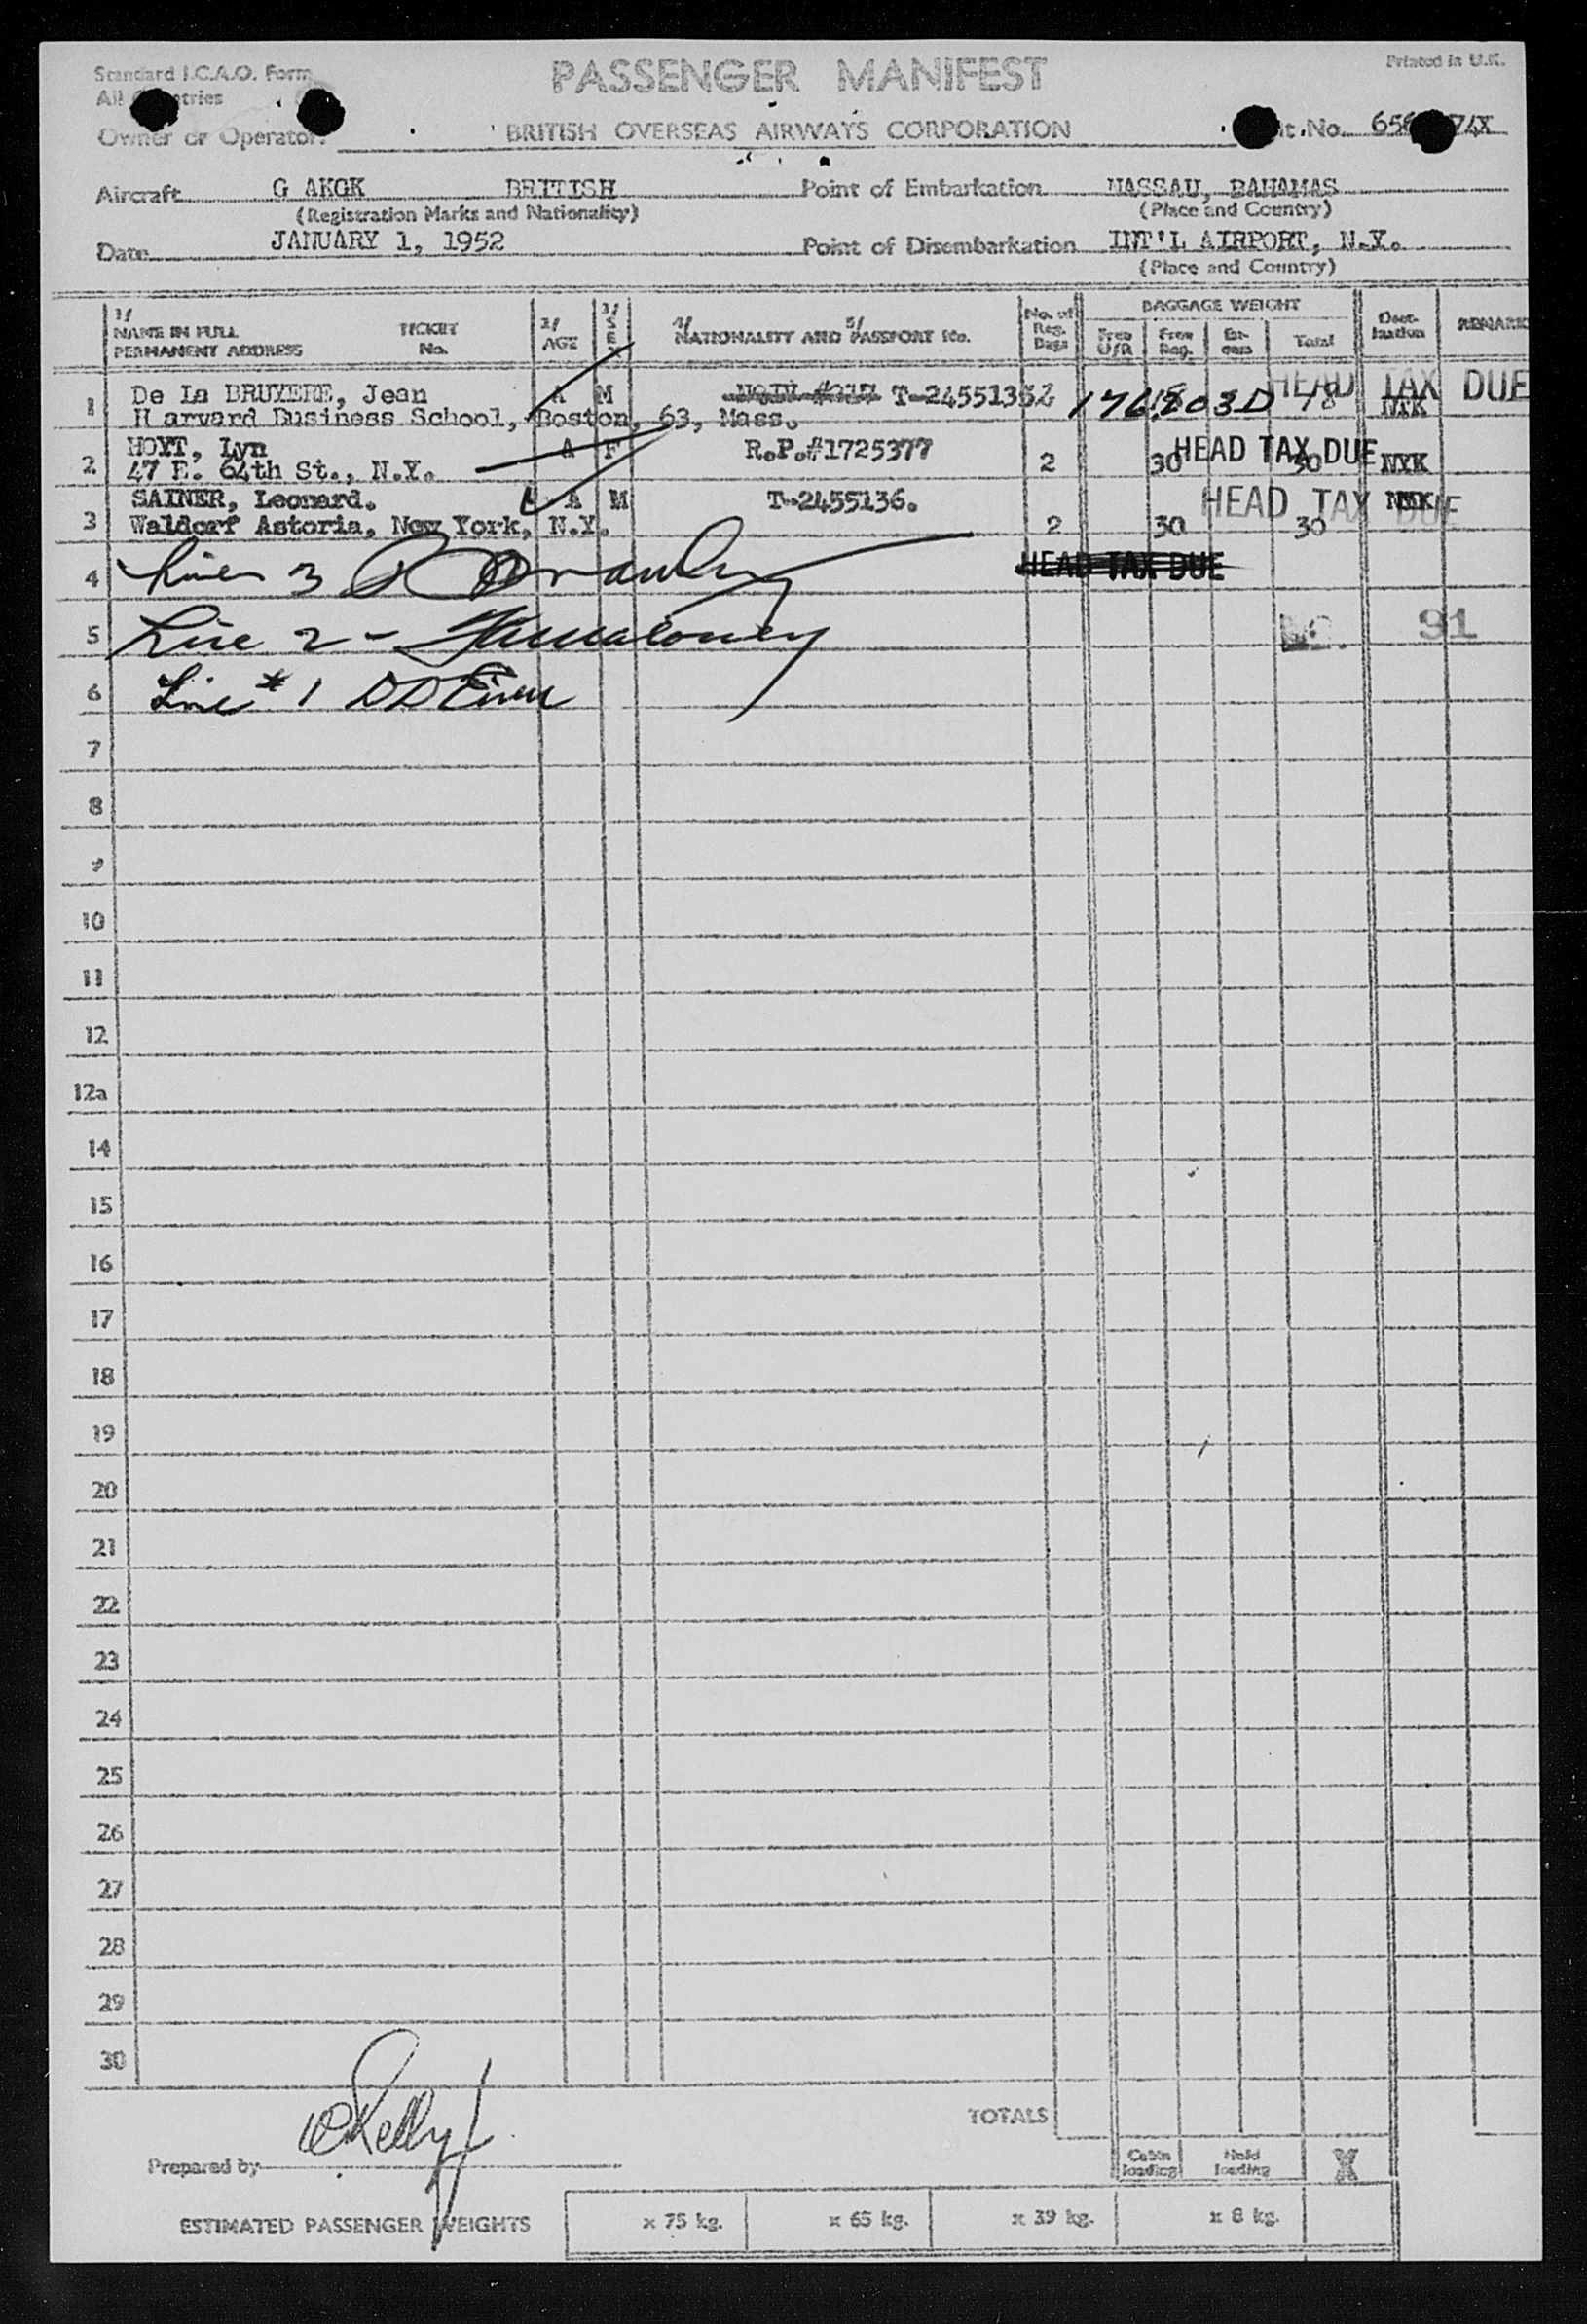 Standard I.C.A.O. Form
PASSENGER MANIFEST
Printed in U.K.
Owner or Operator BRITISH OVERSEAS AIRWAYS CORPORATION
Aircraft G AKGK BRITISH Point of Embarkation NASSAU, BAHAMAS
(Registration Marks and Nationality) (Place and Country)
Date JANUARY 1, 1952 Point of Disembarkation INT'L AIRPORT, N.Y.
(Place and Country)
1/ NAME IN FULL PERMANENT ADDRESS TICKET No. 2/ AGE 3/ SEX 4/ NATIONALITY AND 5/ PASSPORT No. No. of Reg. Bags BAGGAGE WEIGHT Free U/R Free Reg. Ex-cess Total Dest-ination REMARKS
1 De La BRUYERE, Jean A M HEAD TAX DUE
Harvard Business School, Boston, 63, Mass. NYK
HOYT, Lyn A F R.P.#1725377 HEAD TAX DUE
2 47 E. 64th St., N.Y. 2 30 30 NYK
SAINER, Leonard. A M T-2455136. HEAD TAX DUE NYK
3 Waldorf Astoria, New York, N.Y. 2 30 30
4 Line 3 HEAD TAX DUE
5 Line 2 - 91
6 Line #1
7
8
9
10
11
12
12a
14
15
16
17
18
19
20
21
22
23
24
25
26
27
28
29
30
TOTALS
Kelly
Prepared by Cabin loading Hold loading X
ESTIMATED PASSENGER WEIGHTS x 75 kg. x 65 kg. x 39 kg. x 8 kg.